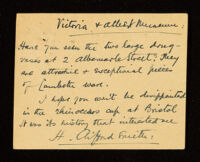 Victoria & Albert Museum.
Have you seen the two large drug-
vases at 2 Albemarle Street? They
are attractive & exceptional pieces
of Lambeth ware.
I hope you won't be disappointed
in the rhinoceros cup at Bristol
It was its history that interested me
H. Clifford Smith.